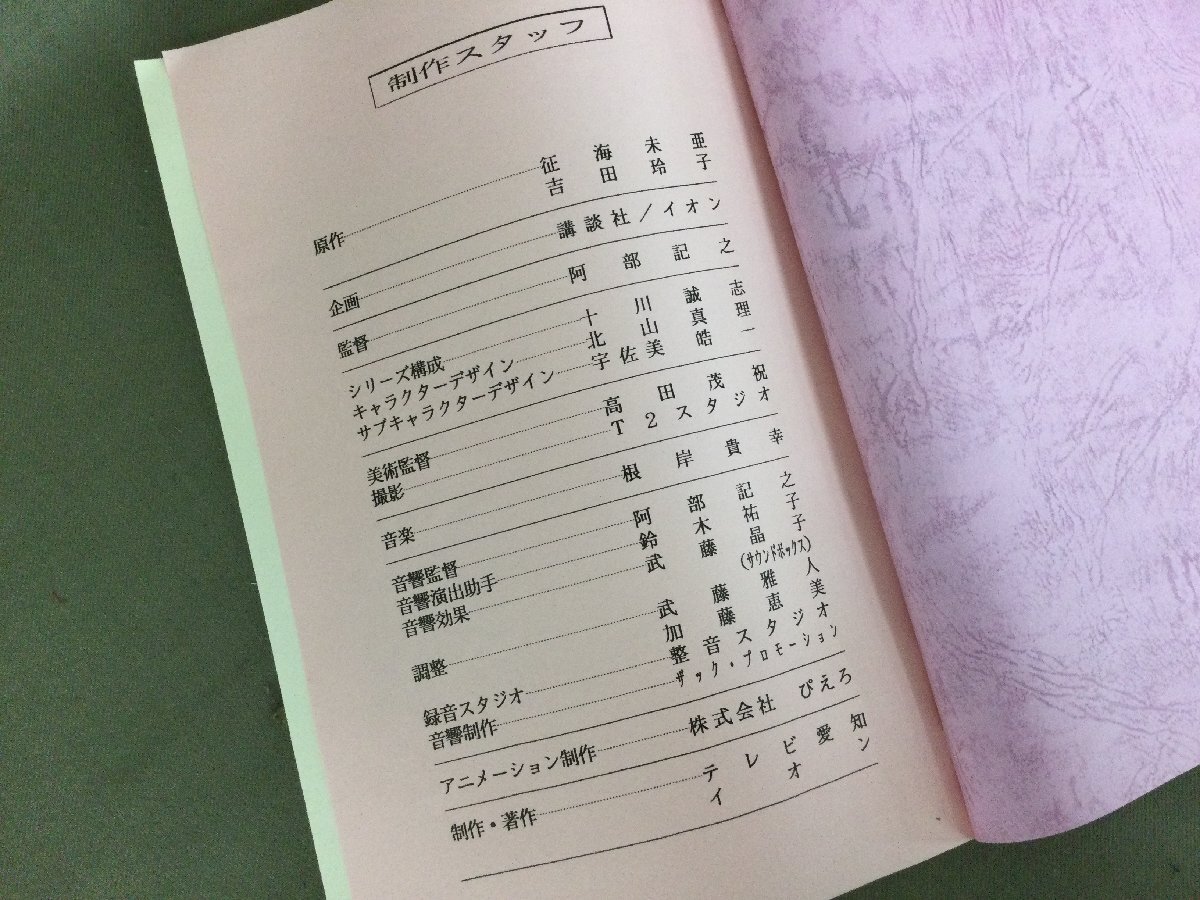 制作スタッフ
原作 征海未亜
吉田玲子
企画 講談社/イオン
監督 阿部記之
シリーズ構成 十川誠志
キャラクターデザイン 北山真理
サブキャラクターデザイン 宇佐美皓一
美術監督 高田茂祝
撮影 T2スタジオ
音楽 根岸貴幸
音響監督 阿部記之
音響演出助手 鈴木祐子
音響効果 武藤晶子
(サウンドボックス)
調整 武藤雅人
加藤恵美
録音スタジオ 整音スタジオ
音響制作 ザック・プロモーション
アニメーション制作 株式会社 ぴえろ
制作・著作 テレビ愛知
イオン